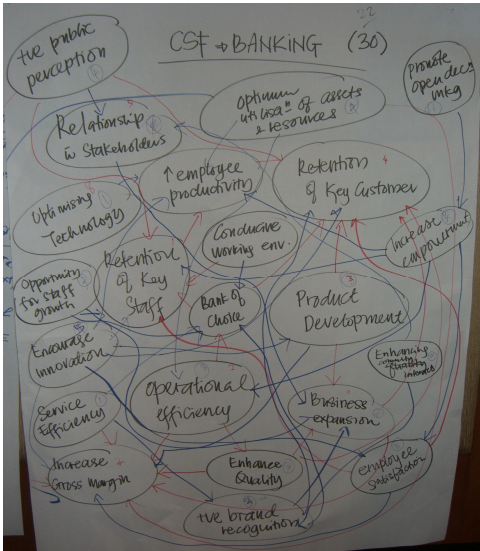 22
CSF → BANKING (30)
+ve public
perception
promote
open dec.
mkg
Relationship
in Stakeholders
Optimum
utilisaⁿ of assets
& resources
↑ employee
productivity
Retention
of Key Customer
Optimising
Technology
Conducive
working env.
Increase
empowerment
Retention
of Key
Staff
Opportunity
for staff
growth
Bank of
Choice
Product
Development
Encourage
innovation
Enhancing
Quality
Operational
efficiency
Business
expansion
Service
Efficiency
Increase
Gross Margin
Enhance
Quality
employee
satisfaction
+ve brand
recognition